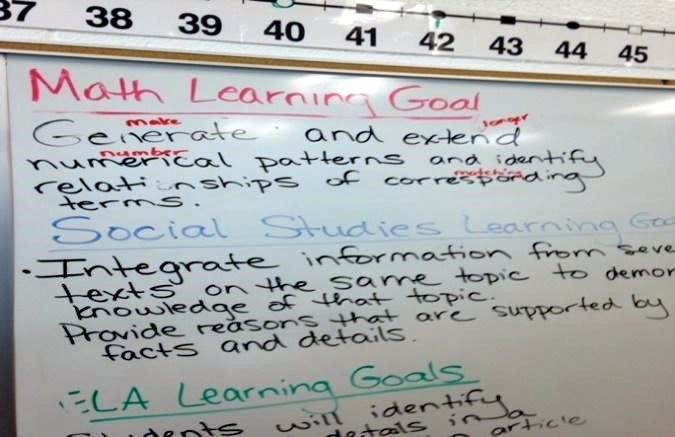 37 38 39 40 41 42 43 44 45
Math Learning Goal
make longer
Generate and extend
number
numerical patterns and identify
matching
relationships of corresponding
terms.
Social Studies Learning Goa
• Integrate information from seve
texts on the same topic to demon
knowledge of that topic.
Provide reasons that are supported by
facts and details.
ELA Learning Goals
Students will identify
details in a
article